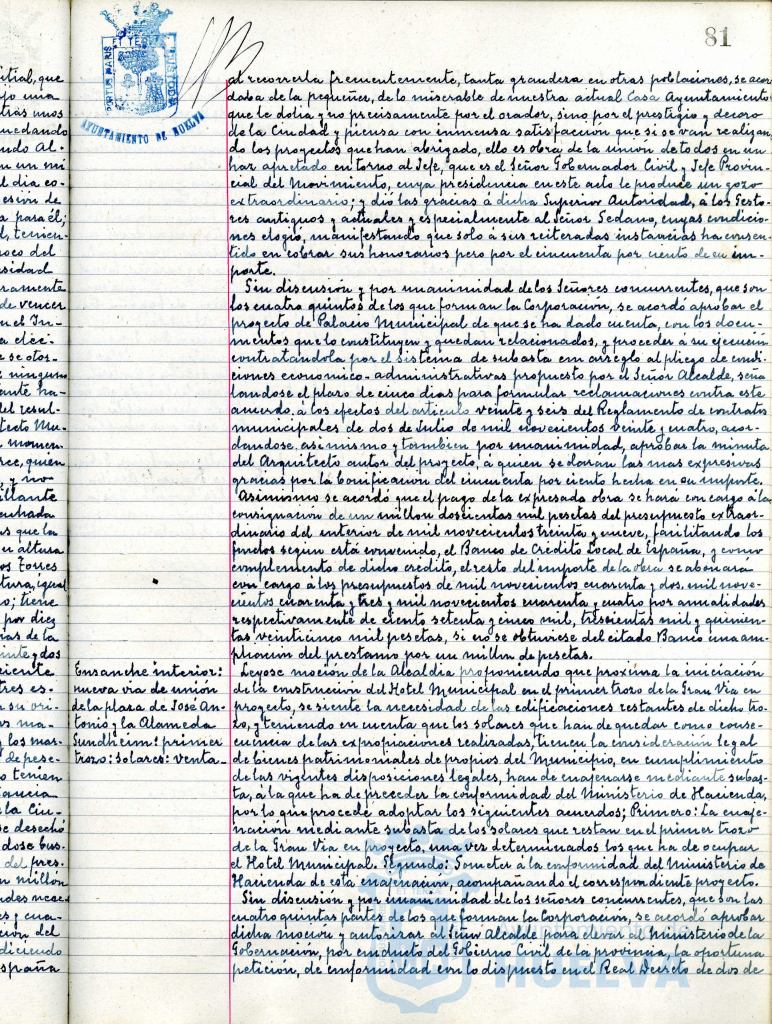 81
PORTUS MARIS ET TERRAE CUSTODIA
AYUNTAMIENTO DE HUELVA
al recorrerla frementemente, tanta grandeza en otras poblaciones, se acor
daba de la pequeñez, de lo miserable de nuestra actual Casa Ayuntamiento
que le dolia y no precisamente por el orador, sino por el prestigio y decoro
de la Ciudad y piensa con inmensa satisfaccion que si se van realizan
do los proyectos que han abrigado, ello es obra de la union de todos en un
haz apretado en torno al Jefe, que es el Señor Gobernador Civil y Jefe Provin-
cial del Movimiento, cuya presidencia en este acto le produce un gozo
extraordinario; y dió las gracias á dicha Superior Autoridad, á los Gesto-
res antiguos y actuales y especialmente al Señor Sedano, cuyas condicio-
nes elogió, manifestando que solo á sus reiteradas instancias ha consen-
tido en cobrar sus honorarios pero por el cincuenta por ciento de su im-
porte.
Sin discusión y por unanimidad de los Señores concurrentes, que son
los cuatro quintos de los que forman la Corporación, se acordó aprobar el
proyecto de Palacio Municipal de que se ha dado cuenta, con los docu-
mentos que lo constituyen y quedan relacionados, y proceder á su ejecución
contratandola por el sistema de subasta con arreglo al pliego de condi-
ciones economico-administrativas propuesto por el Señor Alcalde, seña
landose el plazo de cinco dias para formular reclamaciones contra este
acuerdo, á los efectos del articulo veinte y seis del Reglamento de contratos
municipales de dos de Julio de mil novecientos veinte y cuatro, acor-
dandose, asi mismo y tambien por unanimidad, aprobar la minuta
del Arquitecto autor del proyecto, á quien se darán las mas expresivas
gracias por la bonificacion del cincuenta por ciento hecha en su importe.
Asimismo se acordó que el pago de la expresada obra se hará con cargo á la
consignación de un millon doscientas mil pesetas del presupuesto extraor-
dinario del enterior de mil novecientos treinta y nueve, facilitando los
fondos segun está convenido, el Banco de Crédito Local de España, y como
complemento de dicho crédito, el resto del importe de la obra se abonará
con cargo á los presupuestos de mil novecientos cuarenta y dos, mil nove-
cientos cuarenta y tres y mil novecientos cuarenta y cuatro por anualidades
respectivamente de ciento setenta y cinco mil, trescientas mil y quinien-
tas veinticinco mil pesetas, si no se obtuviese del citado Banco una am-
pliación del prestamo por un millon de pesetas.
Ensanche interior:
nueva via de unión
de la plaza de José An-
tonio y la Alameda
Sundheim: primer
trozo: Solares: venta.
Leyose moción de la Alcaldia proponiendo que proxima la iniciación
de la construcción del Hotel Municipal en el primer trozo de la Gran Via en
proyecto, se siente la necesidad de las edificaciones restantes de dicho tro-
zo, y teniendo en cuenta que los solares que han de quedar como conse-
cuencia de las expropiaciones realizadas, tienen la consideración legal
de bienes patrimoniales de propios del Municipio, en cumplimiento
de las vigentes disposiciones legales, han de enajenarse mediante subas-
ta, á la que ha de preceder la conformidad del Ministerio de Hacienda,
por lo que procede adoptar los siguientes acuerdos; Primero: La enaje-
nación mediante subasta de los solares que restan en el primer trozo
de la Gran Via en proyecto, una vez determinados los que ha de ocupar
el Hotel Municipal. Segundo: Someter á la conformidad del Ministerio de
Hacienda de esta enajenacion, acompañando el correspondiente proyecto.
Sin discusion y por unanimidad de los señores concurrentes, que son las
cuatro quintas partes de los que forman la Corporación, se acordó aprobar
dicha moción y autorizar al Señor Alcalde para elevar al Ministerio de la
Gobernación, por conducto del Gobierno Civil de la provincia, la oportuna
petición, de conformidad con lo dispuesto en el Real Decreto de dos de
Ayuntamiento de
HUELVA